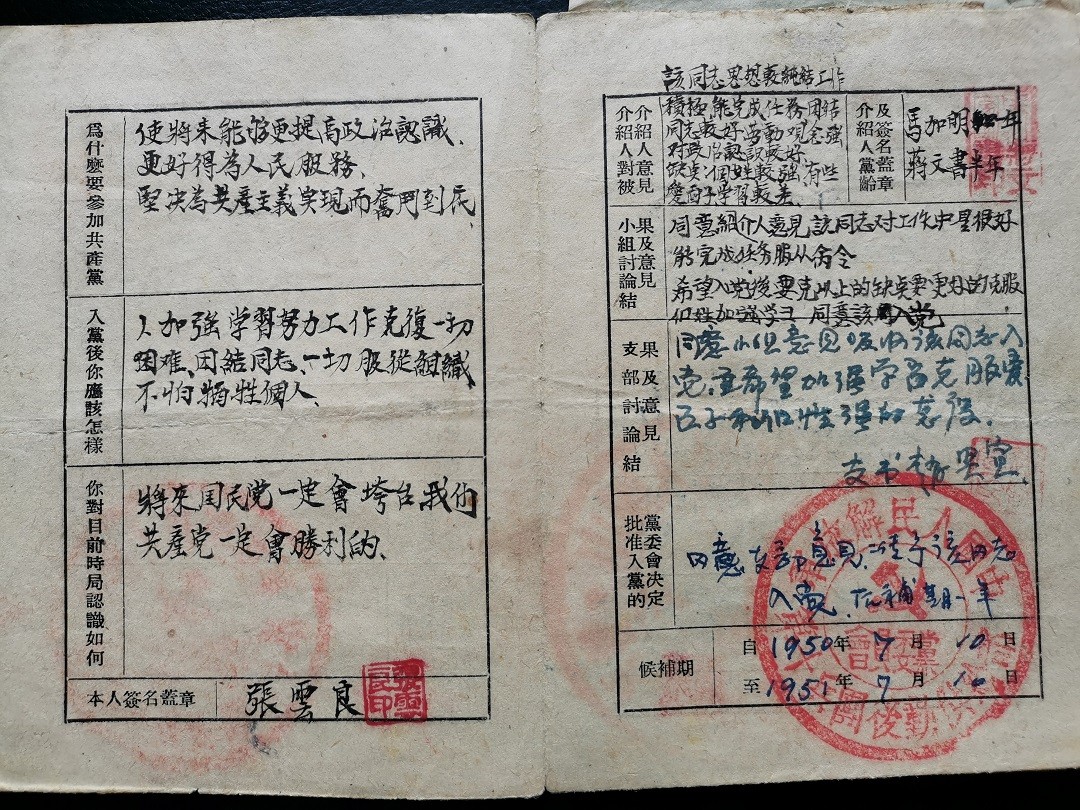 為什麽要參加共產黨
使將來能夠更提高政治認識、
更好得為人民服務、
堅决為共產主義实現而奮鬥到底
入黨後你應該怎樣
加強学習努力工作克復一切
困难、因結同志、一切服從組織
不怕犧牲個人、
你對目前時局認識如何
將來国民党一定會垮台我们
共產党一定會勝利的、
本人簽名蓋章
張雲良
該同志思想較純結工作
介紹人對被介紹人意見
積極能完成任務团結
同志較好劳動观念強
对政治認識較好
缺点個姓較強、有些
愛面子学習較差
介紹人黨齡及簽名蓋章
馬加明一年
蔣文書半年
小組討論結果及意見
同意紹介人意見該同志对工作中是很好
能完成任务服从命令
希望入党後要克以上的缺点要更好的克服
加強学习 同意該入党
支部討論結果及意見
同意小组意見吸收該同志入
党.並希望加强学習克服愛
面子和個性强的
支书
黨委會決定批准入黨的
同意支部意見.批准該同志
入党.候補期一年
候補期
自1950年7月10日
至1951年7月10日
人民解放
黨委會
後勤